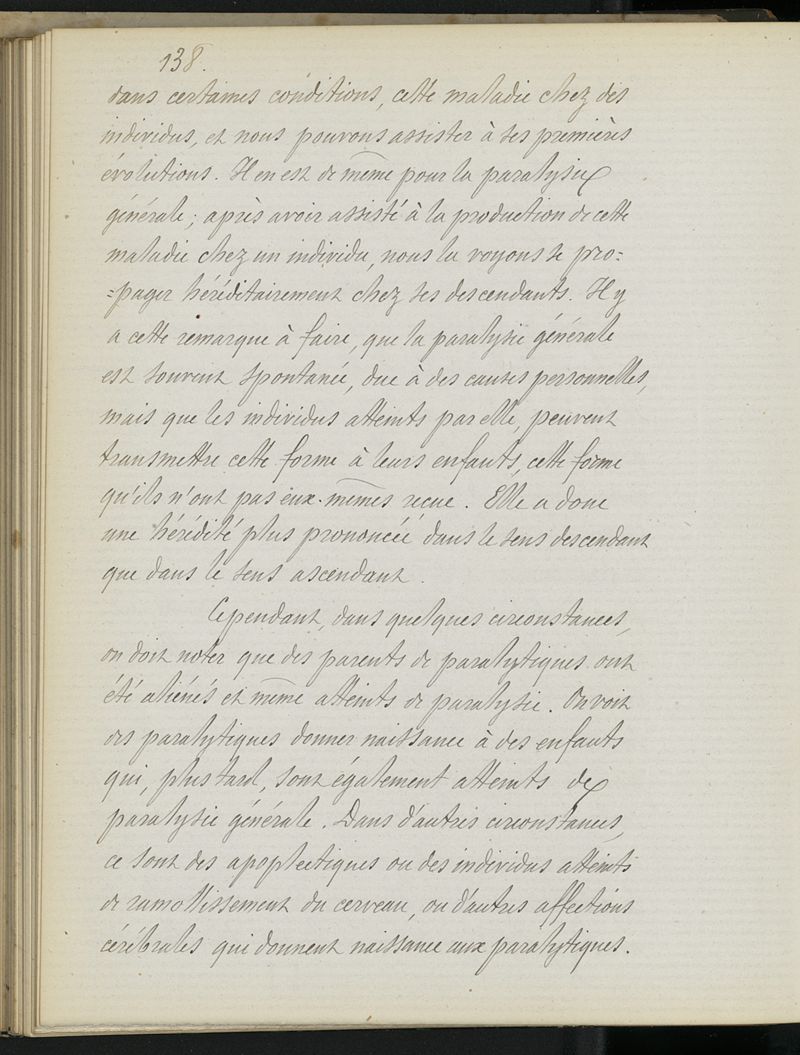 138.
dans certaines conditions, cette maladie chez des
individus, et nous pouvons assister à ses premières
évolutions. Il en est de même pour la paralysie
générale ; après avoir assisté à la production de cette
maladie chez un individu, nous la voyons se pro=
=pager héréditairement chez ses descendants. Il y
a cette remarque à faire, que la paralysie générale
est souvent spontanée, due à des causes personnelles,
mais que les individus atteints par elle, peuvent
transmettre cette forme à leurs enfants, cette forme
qu'ils n'ont pas eux-mêmes reçue. Elle a donc
une hérédité plus prononcée dans le sens descendant
que dans le sens ascendant.
Cependant, dans quelques circonstances,
on doit noter que des parents de paralytiques ont
été aliénés et même atteints de paralysie. On voit
des paralytiques donner naissance à des enfants
qui, plus tard, sont également atteints de
paralysie générale. Dans d'autres circonstances,
ce sont des apoplectiques ou des individus atteints
de ramollissement du cerveau, ou d'autres affections
cérébrales qui donnent naissance aux paralytiques.